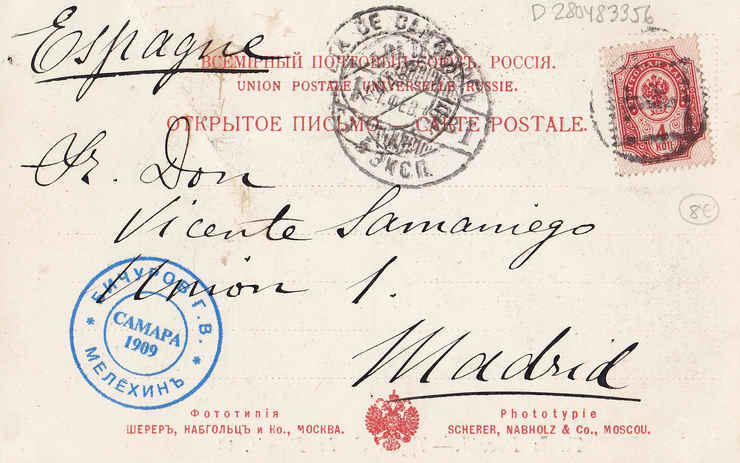 D 280483356
Espagne
ВСЕМІРНЫЙ ПОЧТОВЫЙ СОЮЗЪ, РОССІЯ.
UNION POSTALE UNIVERSELLE RUSSIE.
ОТКРЫТОЕ ПИСЬМО. — CARTE POSTALE.
1
ЭКСП.
4
КОП
8€
Sr. Don
Vicente Samaniego
Unión 1.
Madrid
БИЧУРОВ Г. В.
САМАРА
1909
МЕЛЕХИНЪ
Фототипія
ШЕРЕРЪ, НАБГОЛЬЦЪ и Ко., МОСКВА.
Phototypie
SCHERER, NABHOLZ & Co., MOSCOU.